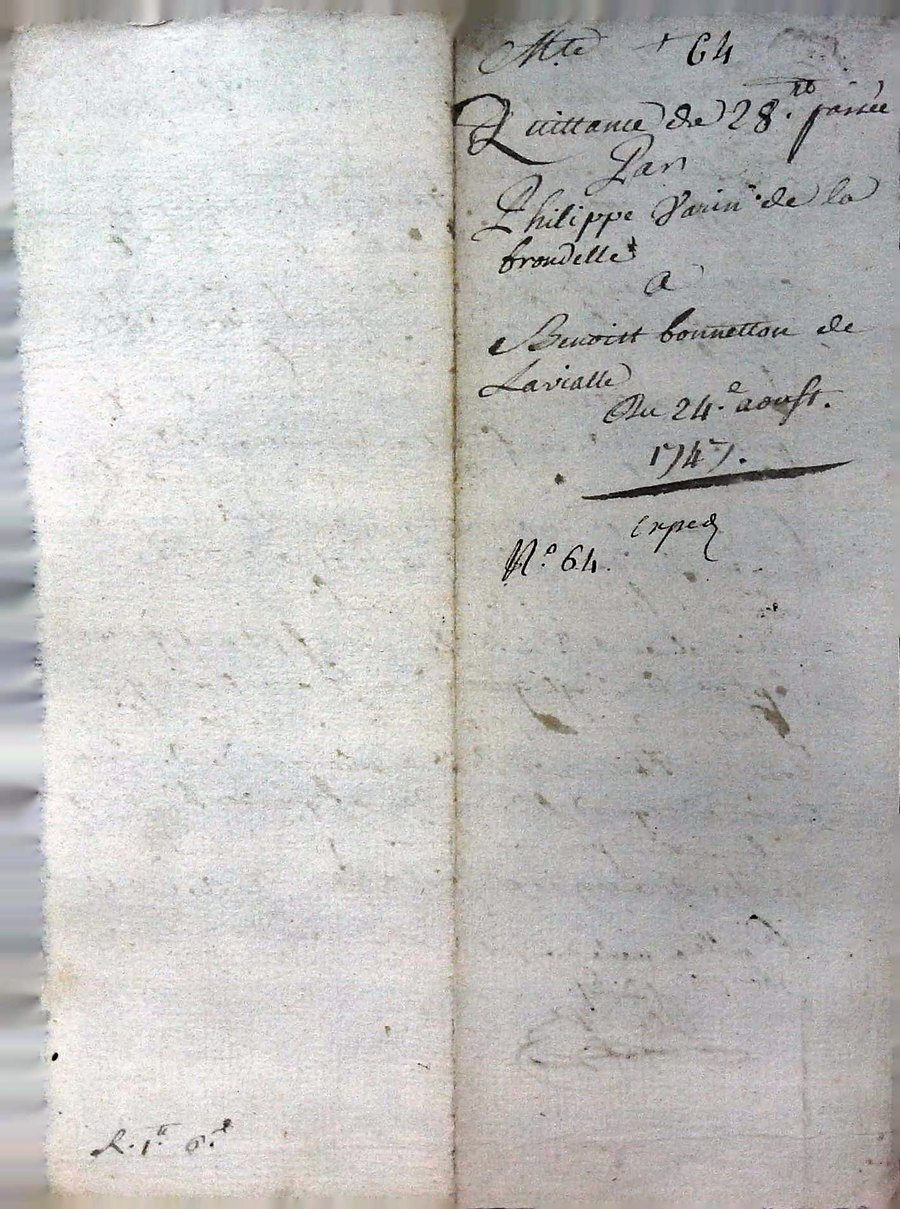 Mte + 64
Quittance de 28.tt passée
Par
Philippe Varin de la
brondelle
a
Benoist bonnetton de
Lavialle
Du 24.e aoust.
1747.
Exped
N.o 64.
R. 1.tt 6.d